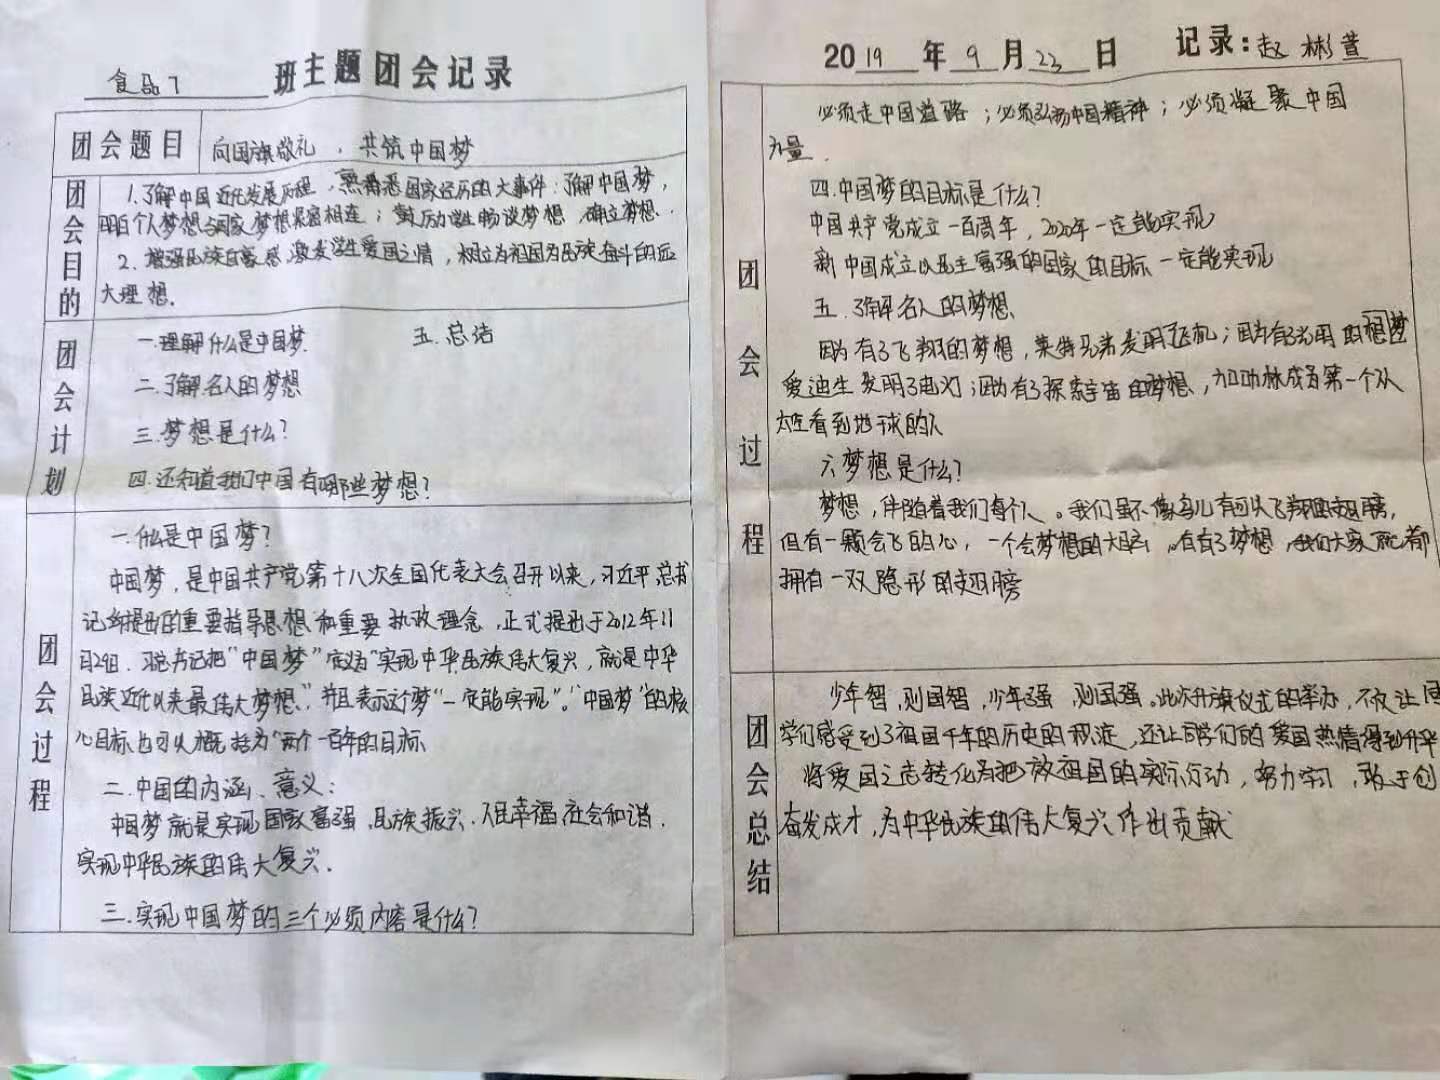 食品7 班主题团会记录
团会题目 向国旗敬礼，共筑中国梦
团会目的
1.了解中国近代发展历程，熟悉国家经历的大事件：了解中国梦，
明白个人梦想与国家梦想紧密相连；鼓励学生畅谈梦想，确立梦想.
2.增强民族自豪感激发学生爱国之情，树立为祖国为民族奋斗的远
大理想.
团会计划
一.理解什么是中国梦. 五.总结
二.了解名人的梦想
三.梦想是什么?
四.还知道我们中国有哪些梦想?
团会过程
一.什么是中国梦?
中国梦，是中国共产党第十八次全国代表大会召开以来，习近平总书
记所提出的重要指导思想和重要执政理念，正式提出于2012年11
月29日.习总书记把“中国梦”定义为“实现中华民族伟大复兴，就是中华
民族近代以来最伟大梦想”，并且表示这个梦“一定能实现”。“中国梦”的核
心目标也可以概括为“两个一百年的目标
二.中国的内涵、意义：
中国梦就是实现国家富强，民族振兴.人民幸福,社会和谐.
实现中华民族的伟大复兴.
三.实现中国梦的三个必须内容是什么?
2019年9月23日 记录：赵彬萱
团会过程
必须走中国道路；必须弘扬中国精神；必须凝聚中国
力量.
四.中国梦的目标是什么?
中国共产党成立一百周年，2020年一定能实现
新中国成立以民主富强的国家的目标一定能实现
五.了解名人的梦想.
因为有了飞翔的梦想，莱特兄弟发明飞机；因为有了光明的想梦
爱迪生发明了电灯；因为有了探索宇宙的梦想，加加林成为第一个从
太空看到地球的人
六.梦想是什么?
梦想，伴随着我们每个人。我们虽不像鸟儿有可以飞翔的翅膀，
但有一颗会飞的心，一个会梦想的大脑，有了梦想，我们大家就都
拥有一双隐形的翅膀
团会总结
少年智，则国智，少年强，则国强。此次升旗仪式的举办，不仅让同
学们感受到了祖国千年的历史的积淀，还让同学们的爱国热情得到升华
将爱国之志转化为报效祖国的实际行动，努力学习，敢于创
奋发成才，为中华民族的伟大复兴作出贡献